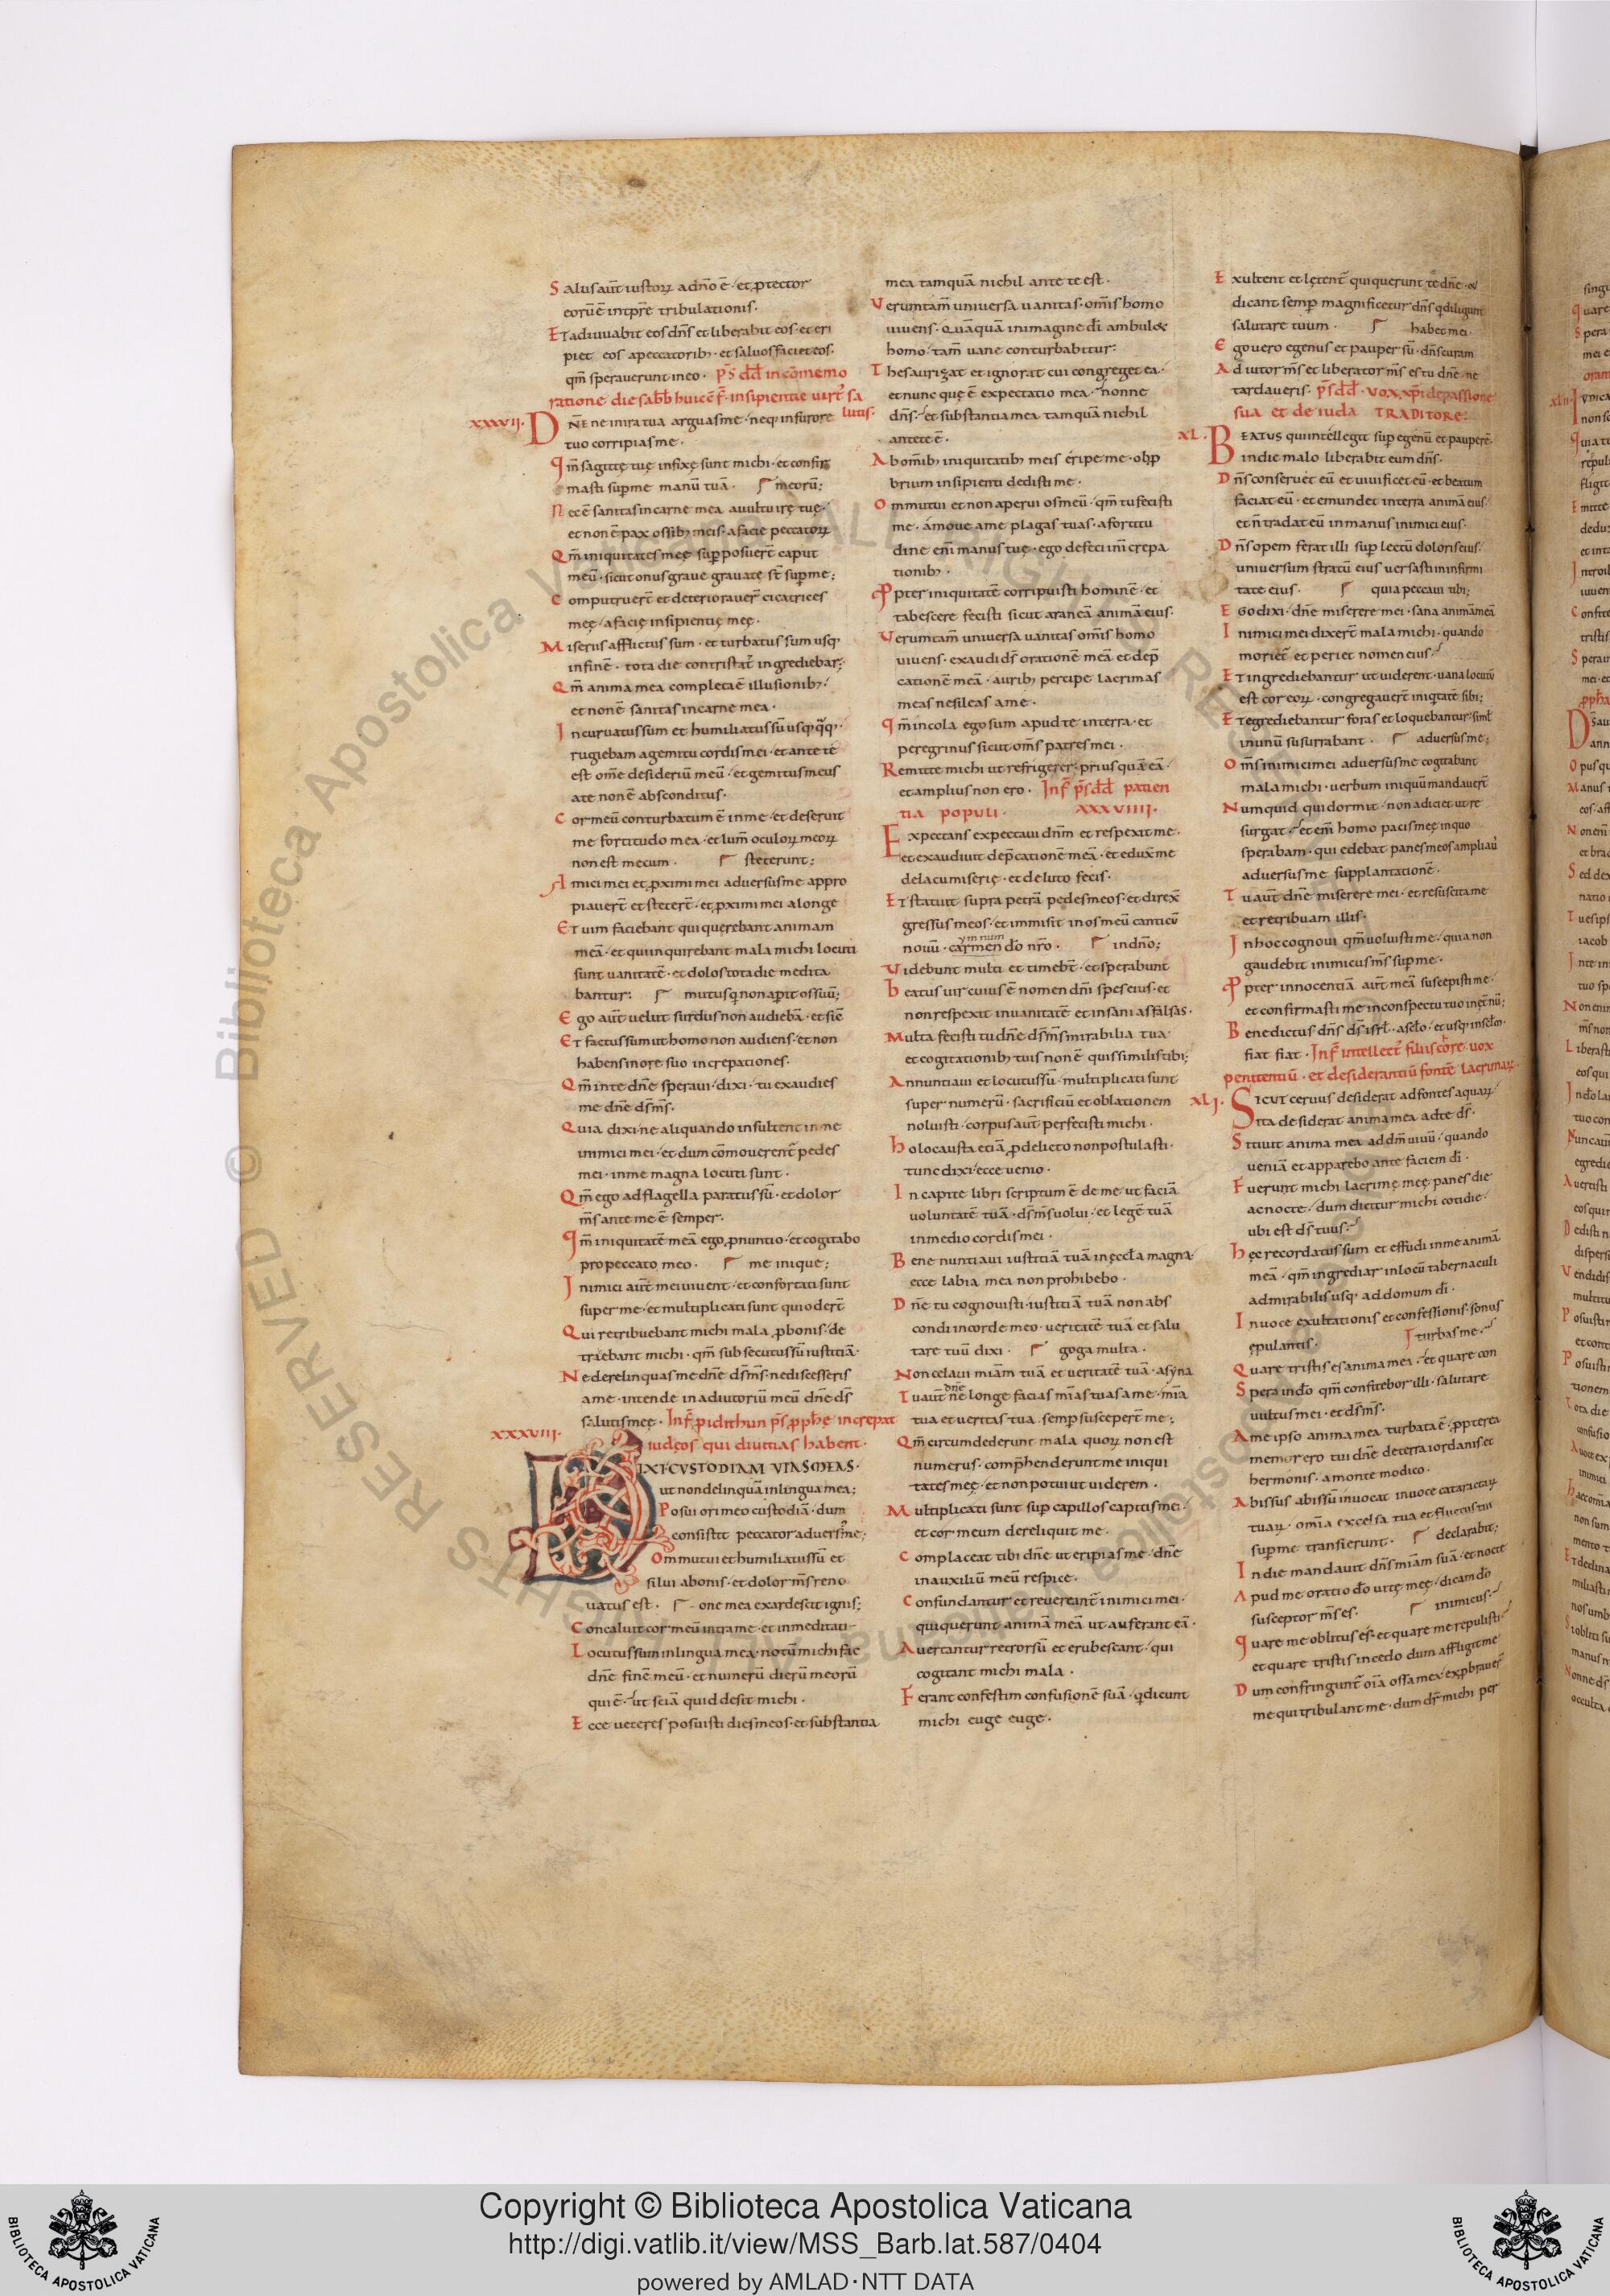 Salus aut̄ iustoꝝ a dn̄o ē · et ꝓtector
eorū ē in tp̄re tribulationis ·
Et adiuuabit eos dn̄s et liberabit eos · et eri
piet eos a peccatorib; · et saluos faciet eos ·
qm̄ sperauerunt in eo · p̄s dd̄ in cōmemo
ratione die sabb̄
lutis ·
xxxvii · Dn̄e ne in ira tua arguas me · neq; in furore
tuo corripias me ·
Qm̄ sagittę tuę infixę sunt michi · et confir
masti sup̄ me manū tuā · meorū;
Nec ē sanitas in carne mea a uultu irę tuę ·
et non ē pax ossib; meis · a facie peccatoꝝ
Qm̄ iniquitates męę sup̄posuer̄t caput
meū · sicut onus graue grauatę st̄ sup̄ me;
Computruer̄t et deteriorauer̄t cicatrices
męę · a facię insipientię męę ·
Miserus afflictus sum · et turbatus sum usq;
in finē · tota die contristat̄ ingrediebar;
Qm̄ anima mea completa ē illusionib; ·
et non ē sanitas in carne mea ·
Incuruatus sum et humiliatus sū usq; q̄q; ·
rugiebam a gemitu cordis mei · et ante te
est om̄e desideriū meū · et gemitus meus
a te non ē absconditus ·
Cor meū conturbatum ē in me · et deseruit
me fortitudo mea · et lum̄ oculoꝝ meoꝝ
non est mecum · steterunt;
Amici mei et ꝓximi mei aduersus me appro
piauer̄t et steter̄t · et ꝓximi mei a longe
Et uim faciebant qui querebant animam
meā · et qui inquirebant mala michi locuti
sunt uanitatē · et dolos tota die medita
bantur; mutus q̄ non aꝑit os suū;
Ego aut̄ uelut surdus non audiebā · et sic̄
Et factus sum ut homo non audiens · et non
habens in ore suo increpationes ·
Qm̄ in te dn̄e speraui · dixi · tu exaudies
me dn̄e ds̄ m̄s ·
Quia dixi · ne aliquando insultent in me
inimici mei · et dum cōmouerent̄ pedes
mei · in me magna locuti sunt ·
Qm̄ ego ad flagella paratus sū · et dolor
m̄s ante me ē semper ·
Qm̄ iniquitatē meā ego ꝓnuntio · et cogitabo
pro peccato meo · me inique;
Inimici aut̄ mei uiuent · et confortati sunt
super me · et multiplicati sunt qui oder̄t
Qui retribuebant michi mala ꝓ bonis · de
traebant michi · qm̄ subsecutus sū iustitiā ·
Ne derelinquas me dn̄e ds̄ m̄s · ne discesseris
a me · intende in adiutoriū meū dn̄e ds̄
salutis męę · Inf̄ ꝓ idithun p̄s ꝓph̄ę increpat
xxxviii · iudęos qui diuitias habent ·
DIXI CUSTODIAM UIAS MEAS ·
ut non delinquā in lingua mea;
Posui ori meo custodiā · dum
consistit peccator aduers̄ me;
Ommutui et humiliatus sū et
silui a bonis · et dolor m̄s reno
uatus est · one mea exardescit ignis;
Concaluit cor meū intra me · et in meditati
Locutus sum in lingua mea · notū michi fac
dn̄e finē meū · et numerū dierū meorū
qui ē · ut sciā quid desit michi ·
Ecce ueteres posuisti dies meos · et substantia
mea tamquā nichil ante te est ·
Uerumtam̄ uniuersa uanitas · om̄is homo
uiuens · Quāquā in imagine dī ambulet
homo · tam̄ uane conturbabitur ·
Thesaurizat et ignorat cui congreget ea ·
et nunc quę ē expectatio mea · nonne
dn̄s · et substantia mea tamquā nichil
ante te ē ·
Ab om̄ib; iniquitatib; meis eripe me · obp̄
brium insipienti dedisti me ·
Ommutui et non aperui os meū · qm̄ tu fecisti
me · amoue a me plagas tuas · a fortitu
dine eni manus tuę · ego defeci in crepa
tionib; ·
Ꝓpter iniquitatē corripuisti hominē · et
tabescere fecisti sicut araneā animā eius ·
Uerumtam̄ uniuersa uanitas om̄is homo
uiuens · exaudi ds̄ orationē meā et dep̄
cationē meā · aurib; percipe lacrimas
meas ne sileas a me ·
Qm̄ incola ego sum apud te in terra · et
peregrinus sicut om̄s patres mei ·
Remitte michi ut refrigerer · prius quā eā ·
et amplius non ero · Inf̄ p̄s dd̄ patien
tia populi · xxxviiii ·
Expectans expectaui dn̄m et respexit me ·
et exaudiuit dep̄cationē meā · et eduxit me
de lacu miserię · et de luto fecis ·
Et statuit supra petrā pedes meos · et direx̄
gressus meos · et immisit in os meū canticū
ymnum
nouū · carmen dō nr̄o · in dn̄o;
Uidebunt multi et timebt̄ · et sperabunt
Beatus uir cuius ē nomen dn̄i spes eius · et
non respexit in uanitatē et insanias falsas ·
Multa fecisti tu dn̄e ds̄ m̄s mirabilia tua ·
et cogitationib; tuis non ē quis similis tibi;
Annuntiaui et locutus sū · multiplicati sunt
super numerū · sacrificiū et oblationem
noluisti · corpus aut̄ perfecisti michi ·
Holocausta etiā ꝓ delicto non postulasti ·
tunc dixi · ecce uenio ·
In capite libri scriptum ē de me ut faciā
uoluntatē tuā · ds̄ m̄s uolui · et legē tuā
in medio cordis mei ·
Bene nuntiaui iustitiā tuā in ęccl̄a magna ·
ecce labia mea non prohibebo ·
Dn̄e tu cognouisti · iustitiā tuā non abs
condi in corde meo · ueritatē tuā et salu
tare tuū dixi · goga multa ·
Non celaui miām tuā et ueritatē tuā · a syna
dn̄e
Tu aut̄ ne longe facias m̄ias tuas a me · m̄ia
tua et ueritas tua semp̄ susceper̄t me;
Qm̄ circumdederunt mala quoꝝ non est
numerus · comp̄henderunt me iniqui
tates męę · et non potui ut uiderem ·
Multiplicati sunt sup̄ capillos capitis mei ·
et cor meum dereliquit me ·
Complaceat tibi dn̄e ut eripias me · dn̄e
in auxiliū meū respice ·
Confundantur et reuereant̄ inimici mei ·
qui querunt animā meā ut auferant eā ·
Auertantur retrorsū et erubescant · qui
cogitant michi mala ·
Ferant confestim confusionē suā · q̄ dicunt
michi euge euge ·
Exultent et lętent̄ qui querunt te dn̄e · et
dicant semp̄ magnificetur dn̄s q̄ diligunt
salutare tuum · habet mei ·
Ego uero egenus et pauper sū · dn̄s curam
Adiutor m̄s et liberator m̄s es tu dn̄e · ne
tardaueris · p̄s dd̄ · uox xp̄i de passione
sua et de iuda TRADITORE ·
XL · BEATUS qui intellegit sup̄ egenū et pauperē ·
in die malo liberabit eum dn̄s ·
Dn̄s conseruet eū et uiuificet eū · et beatum
faciat eū · et emundet in terra animā eius ·
et n̄ tradat eū in manus inimici eius ·
Dn̄s opem ferat illi sup̄ lectū doloris eius ·
uniuersum stratū eius uersasti in infirmi
tate eius · quia peccaui tibi;
Ego dixi · dn̄e miserere mei · sana animā meā
Inimici mei dixer̄t mala michi · quando
moriet̄ et periet nomen eius ·
Et ingrediebantur ut uiderent · uana locutū
est cor eoꝝ · congregauer̄t iniq̄tatē sibi;
Et egrediebantur foras et loquebantur · simł
in unū susurrabant · aduersus me;
Om̄s inimici mei aduersus me cogitabant
mala michi · uerbum iniquū mandauer̄t
Numquid qui dormit · non adiciet ut re
surgat · et eni homo pacis męę in quo
sperabam · qui edebat panes meos ampliau̅
aduersus me supplantationē ·
Tu aut̄ dn̄e miserere mei · et resuscita me
et retribuam illis ·
In hoc cognoui qm̄ uoluisti me · quia non
gaudebit inimicus m̄s sup̄ me ·
Ꝓpter innocentiā aut̄ meā suscepisti me ·
et confirmasti me in conspectu tuo in ęt̄nū;
Benedictus dn̄s ds̄ isrł · a scło · et usq; in scłm ·
fiat fiat · Inf̄ intellect̄ filiis core · uox
penitentiū · et desiderantiū fontē lacrimaꝝ ·
XLI · SICUT ceruus desiderat ad fontes aquaꝝ
ita desiderat anima mea ad te ds̄ ·
Sitiuit anima mea ad dm̄ uiuū · quando
ueniā et apparebo ante faciem dī ·
Fuerunt michi lacrimę męę panes die
ac nocte · dum dicitur michi cotidie ·
ubi est ds̄ tuus ·
Hęc recordatus sum et effudi in me animā
meā · qm̄ ingrediar in locū tabernaculi
admirabilis usq; ad domum dī ·
In uoce exultationis et confessionis · sonus
ępulantis · turbas me ·
Quare tristis es anima mea · et quare con
Spera in dō qm̄ confitebor illi · salutare
uultus mei · et ds̄ m̄s ·
A me ipso anima mea turbata ē · ꝓpterea
memor ero tui dn̄e de terra iordanis et
hermonis · a monte modico ·
Abissus abissū inuocat in uoce cataractaꝝ
tuaꝝ · om̄ia excelsa tua et fluctus tui
sup̄ me transierunt · declarabit;
In die mandauit dn̄s miām suā · et nocte
Apud me oratio dō uitę męę · dicam dō
susceptor m̄s es · inimicus ·
Quare me oblitus es · et quare me repulisti ·
et quare tristis incedo dum affligit me
Dum confringunt̄ oīa ossa mea · exꝓbrauer̄
me qui tribulant me · dum dr̄ michi per
Copyright © Biblioteca Apostolica Vaticana
http://digi.vatlib.it/view/MSS_Barb.lat.587/0404
powered by AMLAD · NTT DATA
BIBLIOTECA APOSTOLICA VATICANA
BIBLIOTECA APOSTOLICA VATICANA